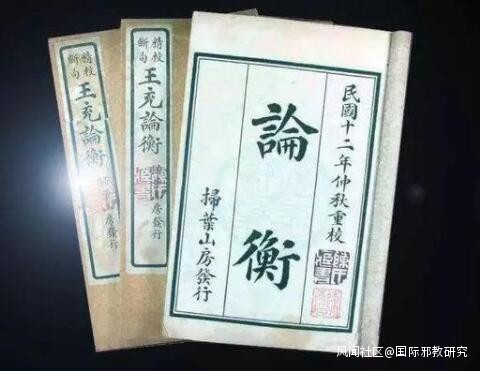 精校
斷句
王充論衡
精校
斷句
王充論衡
房發行
民國十二年仲秋重校
論衡
掃葉山房發行
风闻社区@国际邪教研究